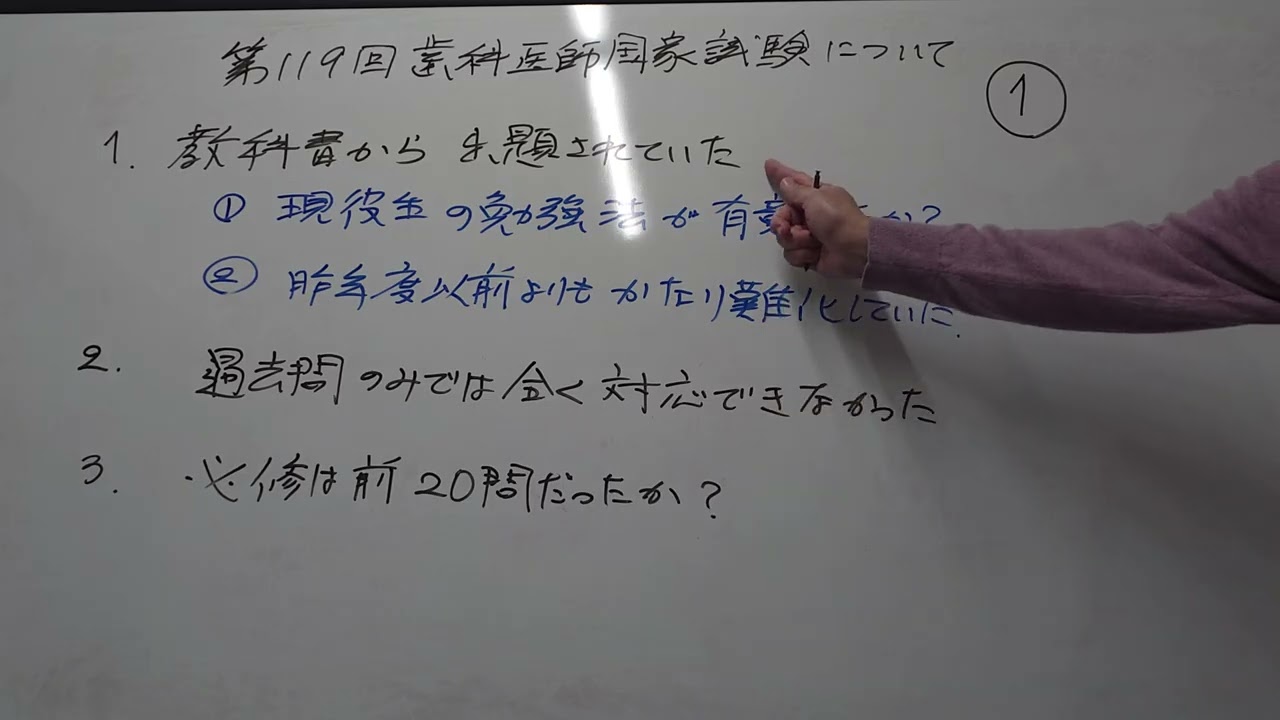 第119回歯科医師国家試験について
①
1. 教科書から出題されていた
① 現役生の勉強法が有 か?
② 昨年度以前よりもかなり難化していた.
2. 過去問のみでは全く対応できなかった
3. 必修は前20問だったか?